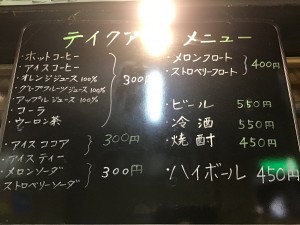 テイクア メニュー
・ホットコーヒー
・アイスコーヒー
・オレンジジュース 100%
・グレープフルーツジュース 100%
・アップルジュース 100%
・コーラ
・ウーロン茶
300
・アイスココア
・アイスティー
300円
・メロンソーダ
ストロベリーソーダ
300円
・メロンフロート
・ストロベリーフロート
400円
・ビール 550円
・冷酒 550円
・焼酎 450円
・ハイボール 450円